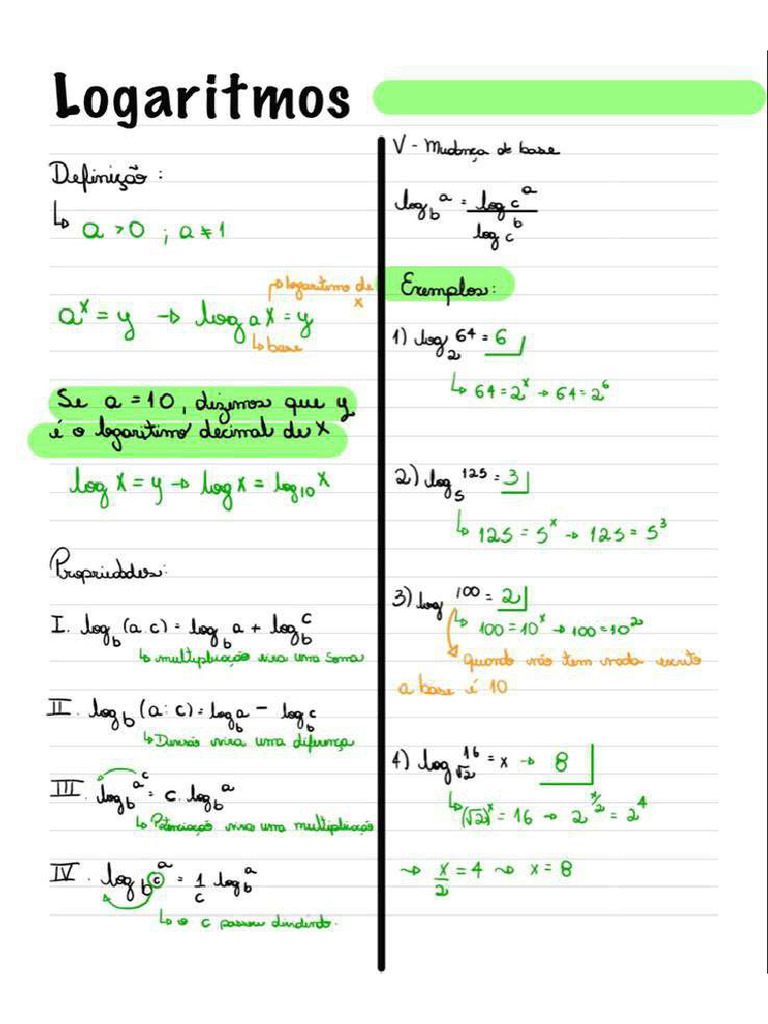 Logaritmos
Definição:
↳ a > 0 ; a ≠ 1
↳ logaritmo de
x
aˣ = y → log a x = y
↳ base
Se a = 10, dizemos que y
é o logaritimo decimal de x
log x = y → log x = log₁₀ x
Propriedades:
I. log_b (a.c) = log_b a + log_b c
↳ multiplicação vira uma soma
II. log_b (a:c) = log_b a - log_b c
↳ Divisão vira uma diferença
III. log_b a^c = c.log_b a
↳ Potenciação vira uma multiplicação
IV. log_b^c a = 1/c log_b a
↳ o c passou dividindo.
V - Mudança de base
log_b a = log_c a / log_c b
Exemplos:
1) log₂ 64 = 6
↳ 64 = 2ˣ → 64 = 2⁶
2) log₅ 125 = 3
↳ 125 = 5ˣ → 125 = 5³
3) log 100 = 2
↳ 100 = 10ˣ → 100 = 10²
↳ quando não tem nada escrito
a base é 10
4) log_√2 16 = x → 8
↳ (√2)ˣ = 16 → 2^(x/2) = 2⁴
→ x/2 = 4 → x = 8